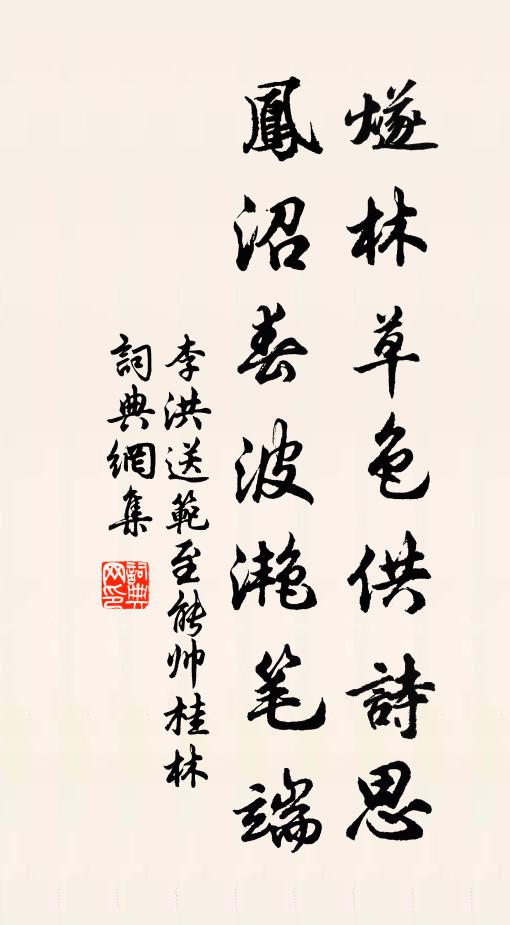 燧林草色供詩思
鳳沼春波滟笔端
李洪送範至能帅桂林
詞典網集
詞典网印